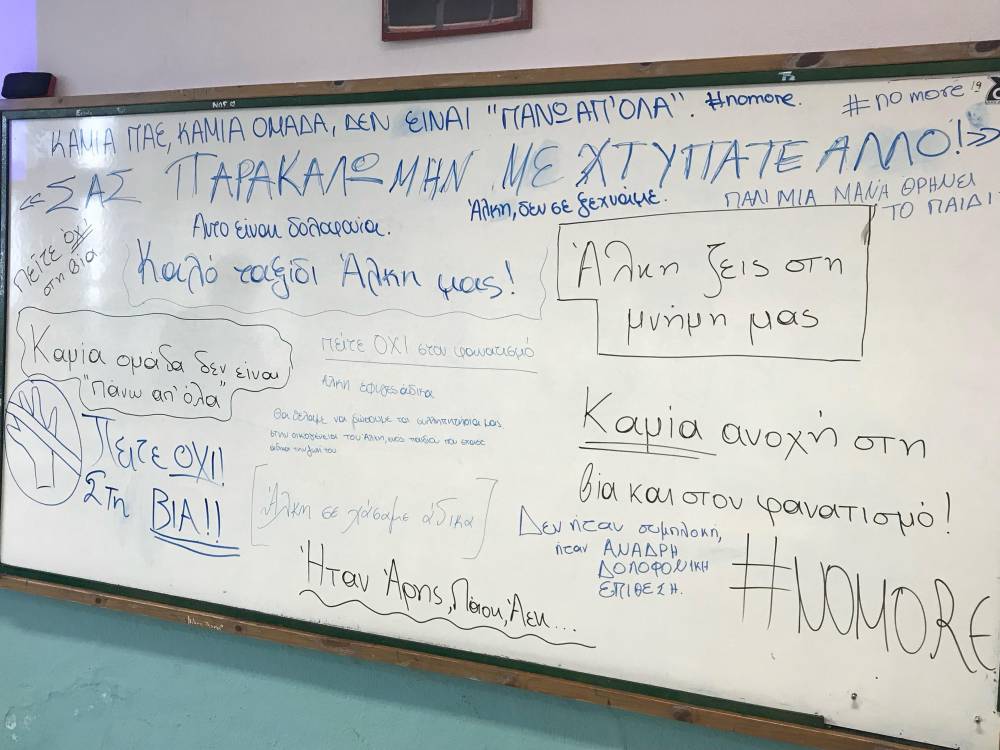 ΚΑΜΙΑ ΠΑΕ, ΚΑΜΙΑ ΟΜΑΔΑ, ΔΕΝ ΕΙΝΑΙ "ΠΑΝΩ ΑΠ'ΟΛΑ". #nomore.
#nomore
«ΣΑΣ ΠΑΡΑΚΑΛΩ ΜΗΝ ΜΕ ΧΤΥΠΑΤΕ ΑΛΛΟ!»
Άλκη, δεν σε ξεχνάμε.
ΠΑΛΙ ΜΙΑ ΜΑΝΑ ΘΡΗΝΕΙ
ΤΟ ΠΑΙΔΙ
Αυτο είναι δολοφονία.
Πείτε όχι
στη βία
Καλό ταξίδι Άλκη μας!
Άλκη ζεις στη
μνήμη μας
Καμία ομάδα δεν είναι
"πάνω απ'όλα"
πείτε ΟΧΙ στον φανατισμό
Άλκη έφυγες άδικα
Θα θέλαμε να δώσουμε τα συλλυπητήρια μας
στην οικογένεια του Άλκη, ενός παιδιού που έχασε
άδικα την ζωή του
Πειτε ΟΧΙ!
Στη ΒΙΑ!!
Άλκη σε χάσαμε άδικα
Καμία ανοχή στη
βία και στον φανατισμό!
Δεν ήταν συμπλοκή,
ήταν ΑΝΑΔΡΗ
ΔΟΛΟΦΟΝΙΚΗ
ΕΠΙΘΕΣΗ.
Ήταν Άρης, Πάοκ, Άεκ...
#NOMORE